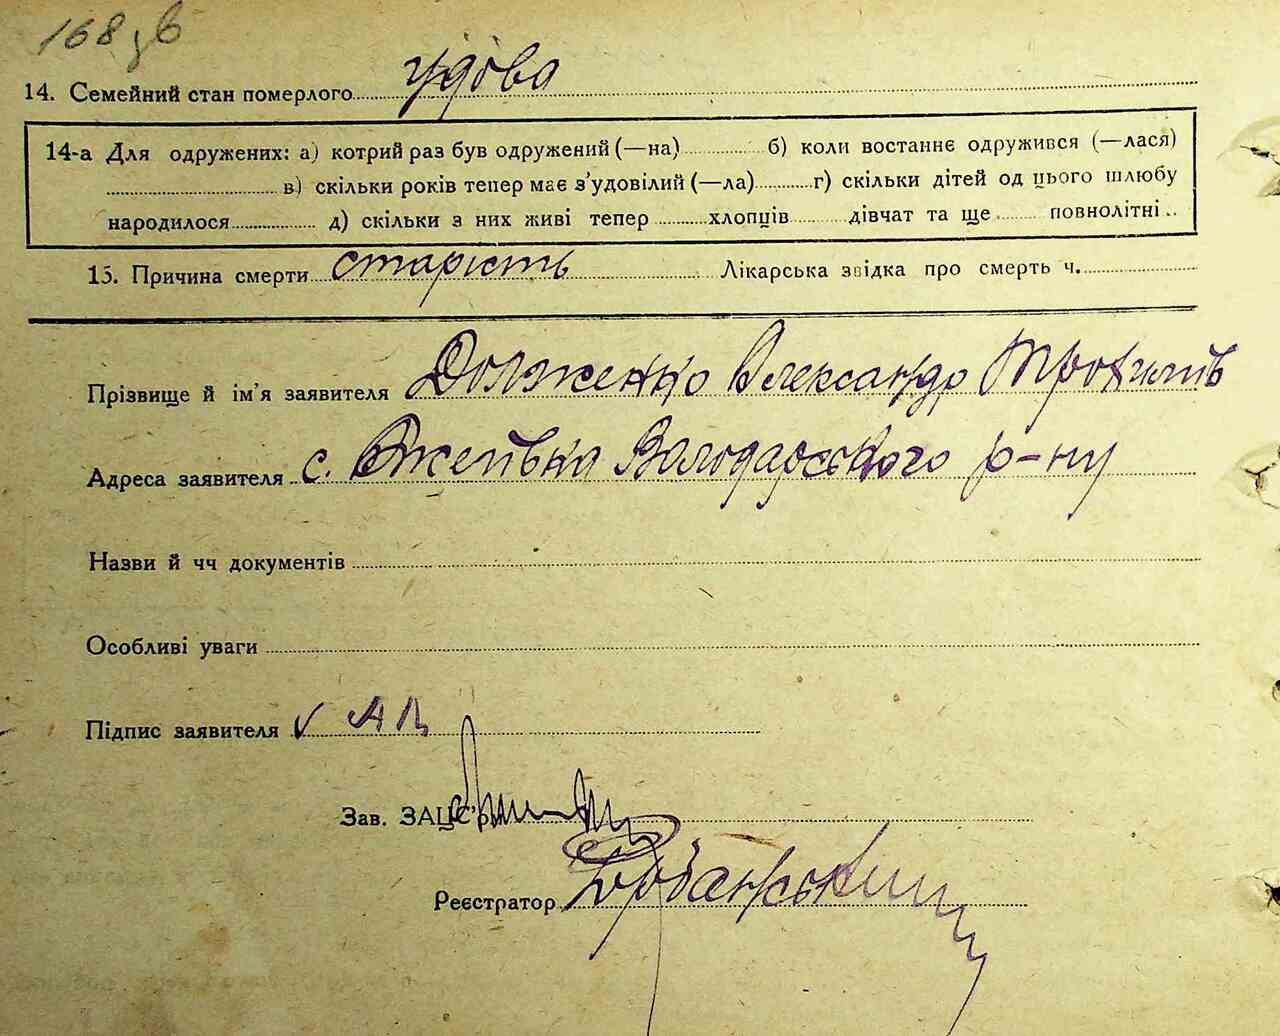 168 зв
14. Семейний стан померлого удова
14-а Для одружених: а) котрий раз був одружений (—на) б) коли востаннє одружився (—лася)
в) скільки років тепер має з’удовілий (—ла) г) скільки дітей од цього шлюбу
народилося д) скільки з них живі тепер хлопців дівчат та ще повнолітні
15. Причина смерти старість Лікарська звідка про смерть ч.
Прізвище й ім’я заявителя Долженко Олександр
Адреса заявителя с. Володарського р-ну
Назви й чч документів
Особливі уваги
Підпис заявителя
Зав. ЗАЦС’ом
Реєстратор